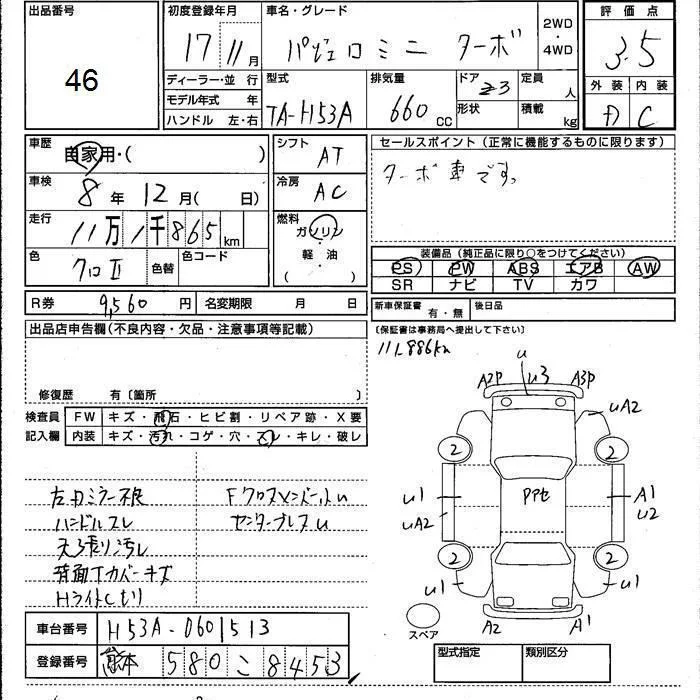 出品番号
46
初度登録年月
17 11月
車名・グレード
パジェロミニ ターボ
2WD
・
4WD
評価点
3.5
外装 内装
D C
ディーラー・並行
モデル年式 年
ハンドル 左・右
型式
TA-H53A
排気量
660 CC
ドア
3
形状
定員
人
積載
kg
車歴
自家用・( )
シフト
AT
セールスポイント(正常に機能するものに限ります)
ターボ車です。
車検
8年 12月( 日)
冷房
AC
走行
11万1千865km
燃料
ガソリン
軽油
( )
色
クロII
色替
色コード
装備品(純正品に限り○をつけてください)
PS PW ABS エアB AW
SR ナビ TV カワ
R券 9,560円
名変期限 月 日
新車保証書 有・無
後日品
出品店申告欄(不良内容・欠品・注意事項等記載)
(保証書は事務局へ提出して下さい)
111,886km
修復歴 有〔箇所 〕
検査員
記入欄
FW キズ・飛石・ヒビ割・リペア跡・X要
内装 キズ・汚れ・コゲ・穴・スレ・キレ・破レ
左ドミラー不良
ハンドルスレ
天張り汚レ
背面Tカバーキズ
Hライトくもり
FクロスメンバーサU
センターブレスU
U
A2P U3 A3P
UA2
2 2
U1 PPセ A1
UA2 U2
2 2
U1 U1
A2 A1
スペア
車台番号 H53A-0601513
登録番号 熊本 580 こ 8453
型式指定 類別区分